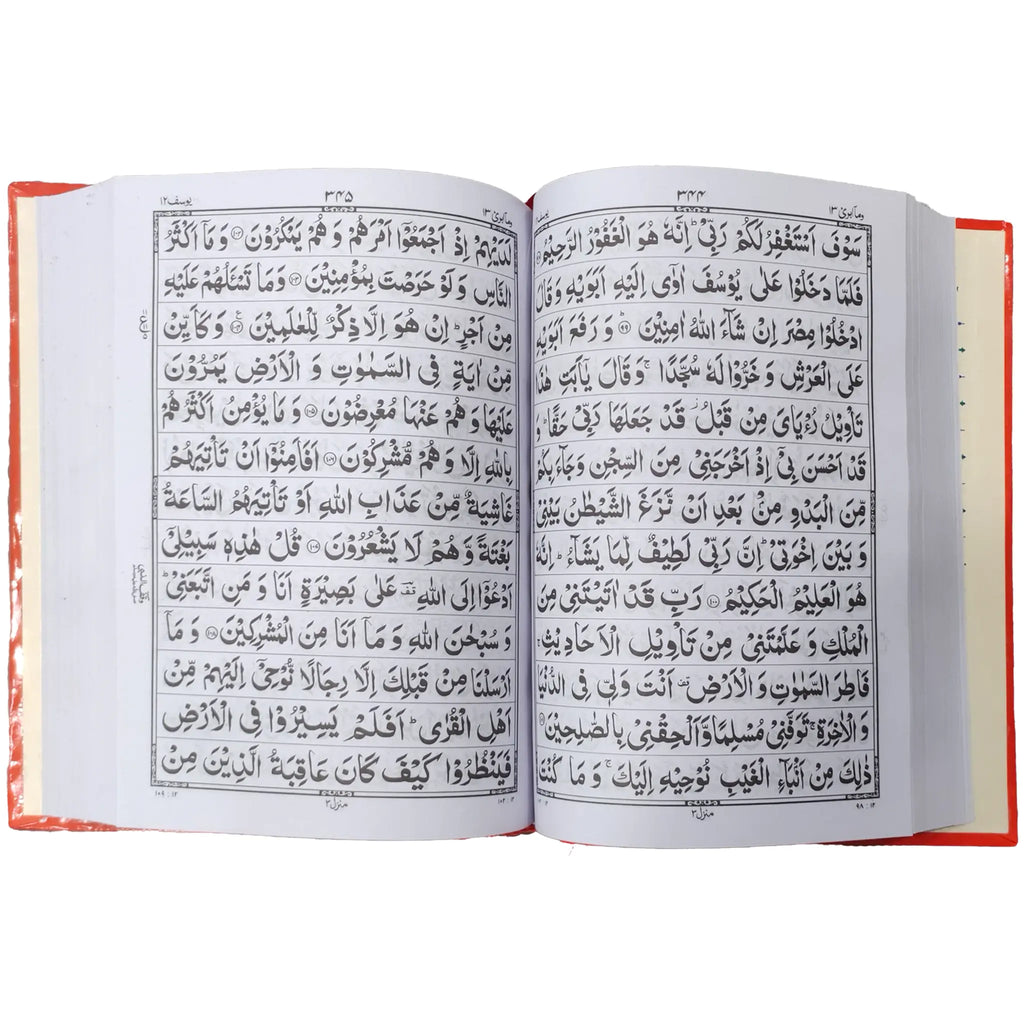 وما ابرئ ۱۳
۳۴۴
یوسف
سَوْفَ اَسْتَغْفِرُ لَكُمْ رَبِّیْ ؕ اِنَّهٗ هُوَ الْغَفُوْرُ الرَّحِیْمُ
فَلَمَّا دَخَلُوْا عَلٰى یُوْسُفَ اٰوٰۤى اِلَیْهِ اَبَوَیْهِ وَ قَالَ
ادْخُلُوْا مِصْرَ اِنْ شَآءَ اللّٰهُ اٰمِنِیْنَ ۹۹ وَ رَفَعَ اَبَوَیْهِ
عَلَى الْعَرْشِ وَ خَرُّوْا لَهٗ سُجَّدًا ۚ وَ قَالَ یٰۤاَبَتِ هٰذَا
تَاْوِیْلُ رُءْیَایَ مِنْ قَبْلُ ؗ قَدْ جَعَلَهَا رَبِّیْ حَقًّا ؕ وَ
قَدْ اَحْسَنَ بِیْۤ اِذْ اَخْرَجَنِیْ مِنَ السِّجْنِ وَ جَآءَ بِكُمْ
مِّنَ الْبَدْوِ مِنْۢ بَعْدِ اَنْ نَّزَغَ الشَّیْطٰنُ بَیْنِیْ
وَ بَیْنَ اِخْوَتِیْ ؕ اِنَّ رَبِّیْ لَطِیْفٌ لِّمَا یَشَآءُ ؕ اِنَّهٗ
هُوَ الْعَلِیْمُ الْحَكِیْمُ ۱۰۰ رَبِّ قَدْ اٰتَیْتَنِیْ مِنَ
الْمُلْكِ وَ عَلَّمْتَنِیْ مِنْ تَاْوِیْلِ الْاَحَادِیْثِ ۚ
فَاطِرَ السَّمٰوٰتِ وَ الْاَرْضِ قف اَنْتَ وَلِیّٖ فِی الدُّنْیَا
وَ الْاٰخِرَةِ ۚ تَوَفَّنِیْ مُسْلِمًا وَّ اَلْحِقْنِیْ بِالصّٰلِحِیْنَ
ذٰلِكَ مِنْ اَنْۢبَآءِ الْغَیْبِ نُوْحِیْهِ اِلَیْكَ ۚ وَ مَا كُنْتَ
۱۲ : ۹۸
منزل ۳
وما ابرئ ۱۳
۳۴۵
یوسف ۱۲
لَدَیْهِمْ اِذْ اَجْمَعُوْۤا اَمْرَهُمْ وَ هُمْ یَمْكُرُوْنَ ۱۰۲ وَ مَاۤ اَكْثَرُ
النَّاسِ وَ لَوْ حَرَصْتَ بِمُؤْمِنِیْنَ ۱۰۳ وَ مَا تَسْـَٔلُهُمْ عَلَیْهِ
مِنْ اَجْرٍ ؕ اِنْ هُوَ اِلَّا ذِكْرٌ لِّلْعٰلَمِیْنَ ۱۰۴ وَ كَاَیِّنْ
مِّنْ اٰیَةٍ فِی السَّمٰوٰتِ وَ الْاَرْضِ یَمُرُّوْنَ
عَلَیْهَا وَ هُمْ عَنْهَا مُعْرِضُوْنَ ۱۰۵ وَ مَا یُؤْمِنُ اَكْثَرُهُمْ
بِاللّٰهِ اِلَّا وَ هُمْ مُّشْرِكُوْنَ ۱۰۶ اَفَاَمِنُوْۤا اَنْ تَاْتِیَهُمْ
غَاشِیَةٌ مِّنْ عَذَابِ اللّٰهِ اَوْ تَاْتِیَهُمُ السَّاعَةُ
بَغْتَةً وَّ هُمْ لَا یَشْعُرُوْنَ ۱۰۷ قُلْ هٰذِهٖ سَبِیْلِیْۤ
اَدْعُوْۤا اِلَى اللّٰهِ قف عَلٰى بَصِیْرَةٍ اَنَا وَ مَنِ اتَّبَعَنِیْ ؕ
وَ سُبْحٰنَ اللّٰهِ وَ مَاۤ اَنَا مِنَ الْمُشْرِكِیْنَ ۱۰۸ وَ مَاۤ
اَرْسَلْنَا مِنْ قَبْلِكَ اِلَّا رِجَالًا نُّوْحِیْۤ اِلَیْهِمْ مِّنْ
اَهْلِ الْقُرٰى ؕ اَفَلَمْ یَسِیْرُوْا فِی الْاَرْضِ
فَیَنْظُرُوْا كَیْفَ كَانَ عَاقِبَةُ الَّذِیْنَ مِنْ
۱۲ : ۱۰۲
منزل ۳
۱۲ : ۱۰۹